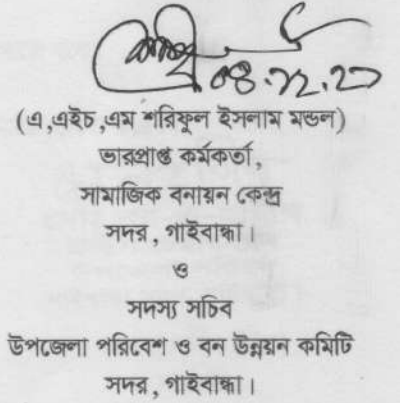 ০৪.১২.২১
(এ,এইচ,এম শরিফুল ইসলাম মন্ডল)
ভারপ্রাপ্ত কর্মকর্তা,
সামাজিক বনায়ন কেন্দ্র
সদর, গাইবান্ধা।
ও
সদস্য সচিব
উপজেলা পরিবেশ ও বন উন্নয়ন কমিটি
সদর, গাইবান্ধা।